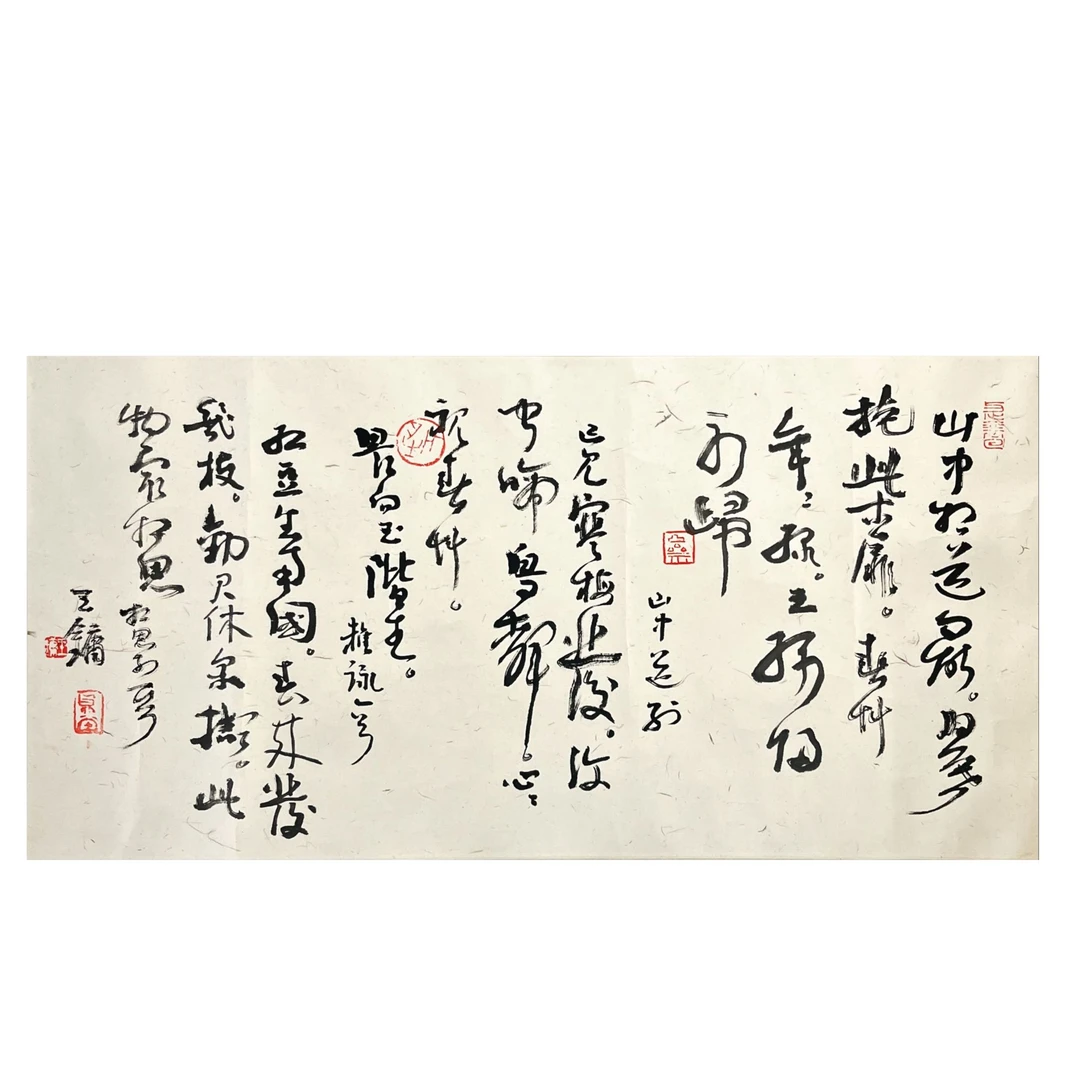 山中相送罷。日暮
掩柴扉。春艸
年〻綠。王孫歸
不歸
山中送別
已見寒梅發。復
聞啼鳥聲。心〻
視春艸。
畏向玉階生。
雜詠一首
紅豆生南國。春來發
幾枝。勸君休采擷。此
物最相思
相思子一首
王鏞